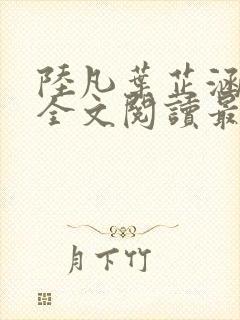 陸凡葉芷涵
全文閱讀最
月下竹